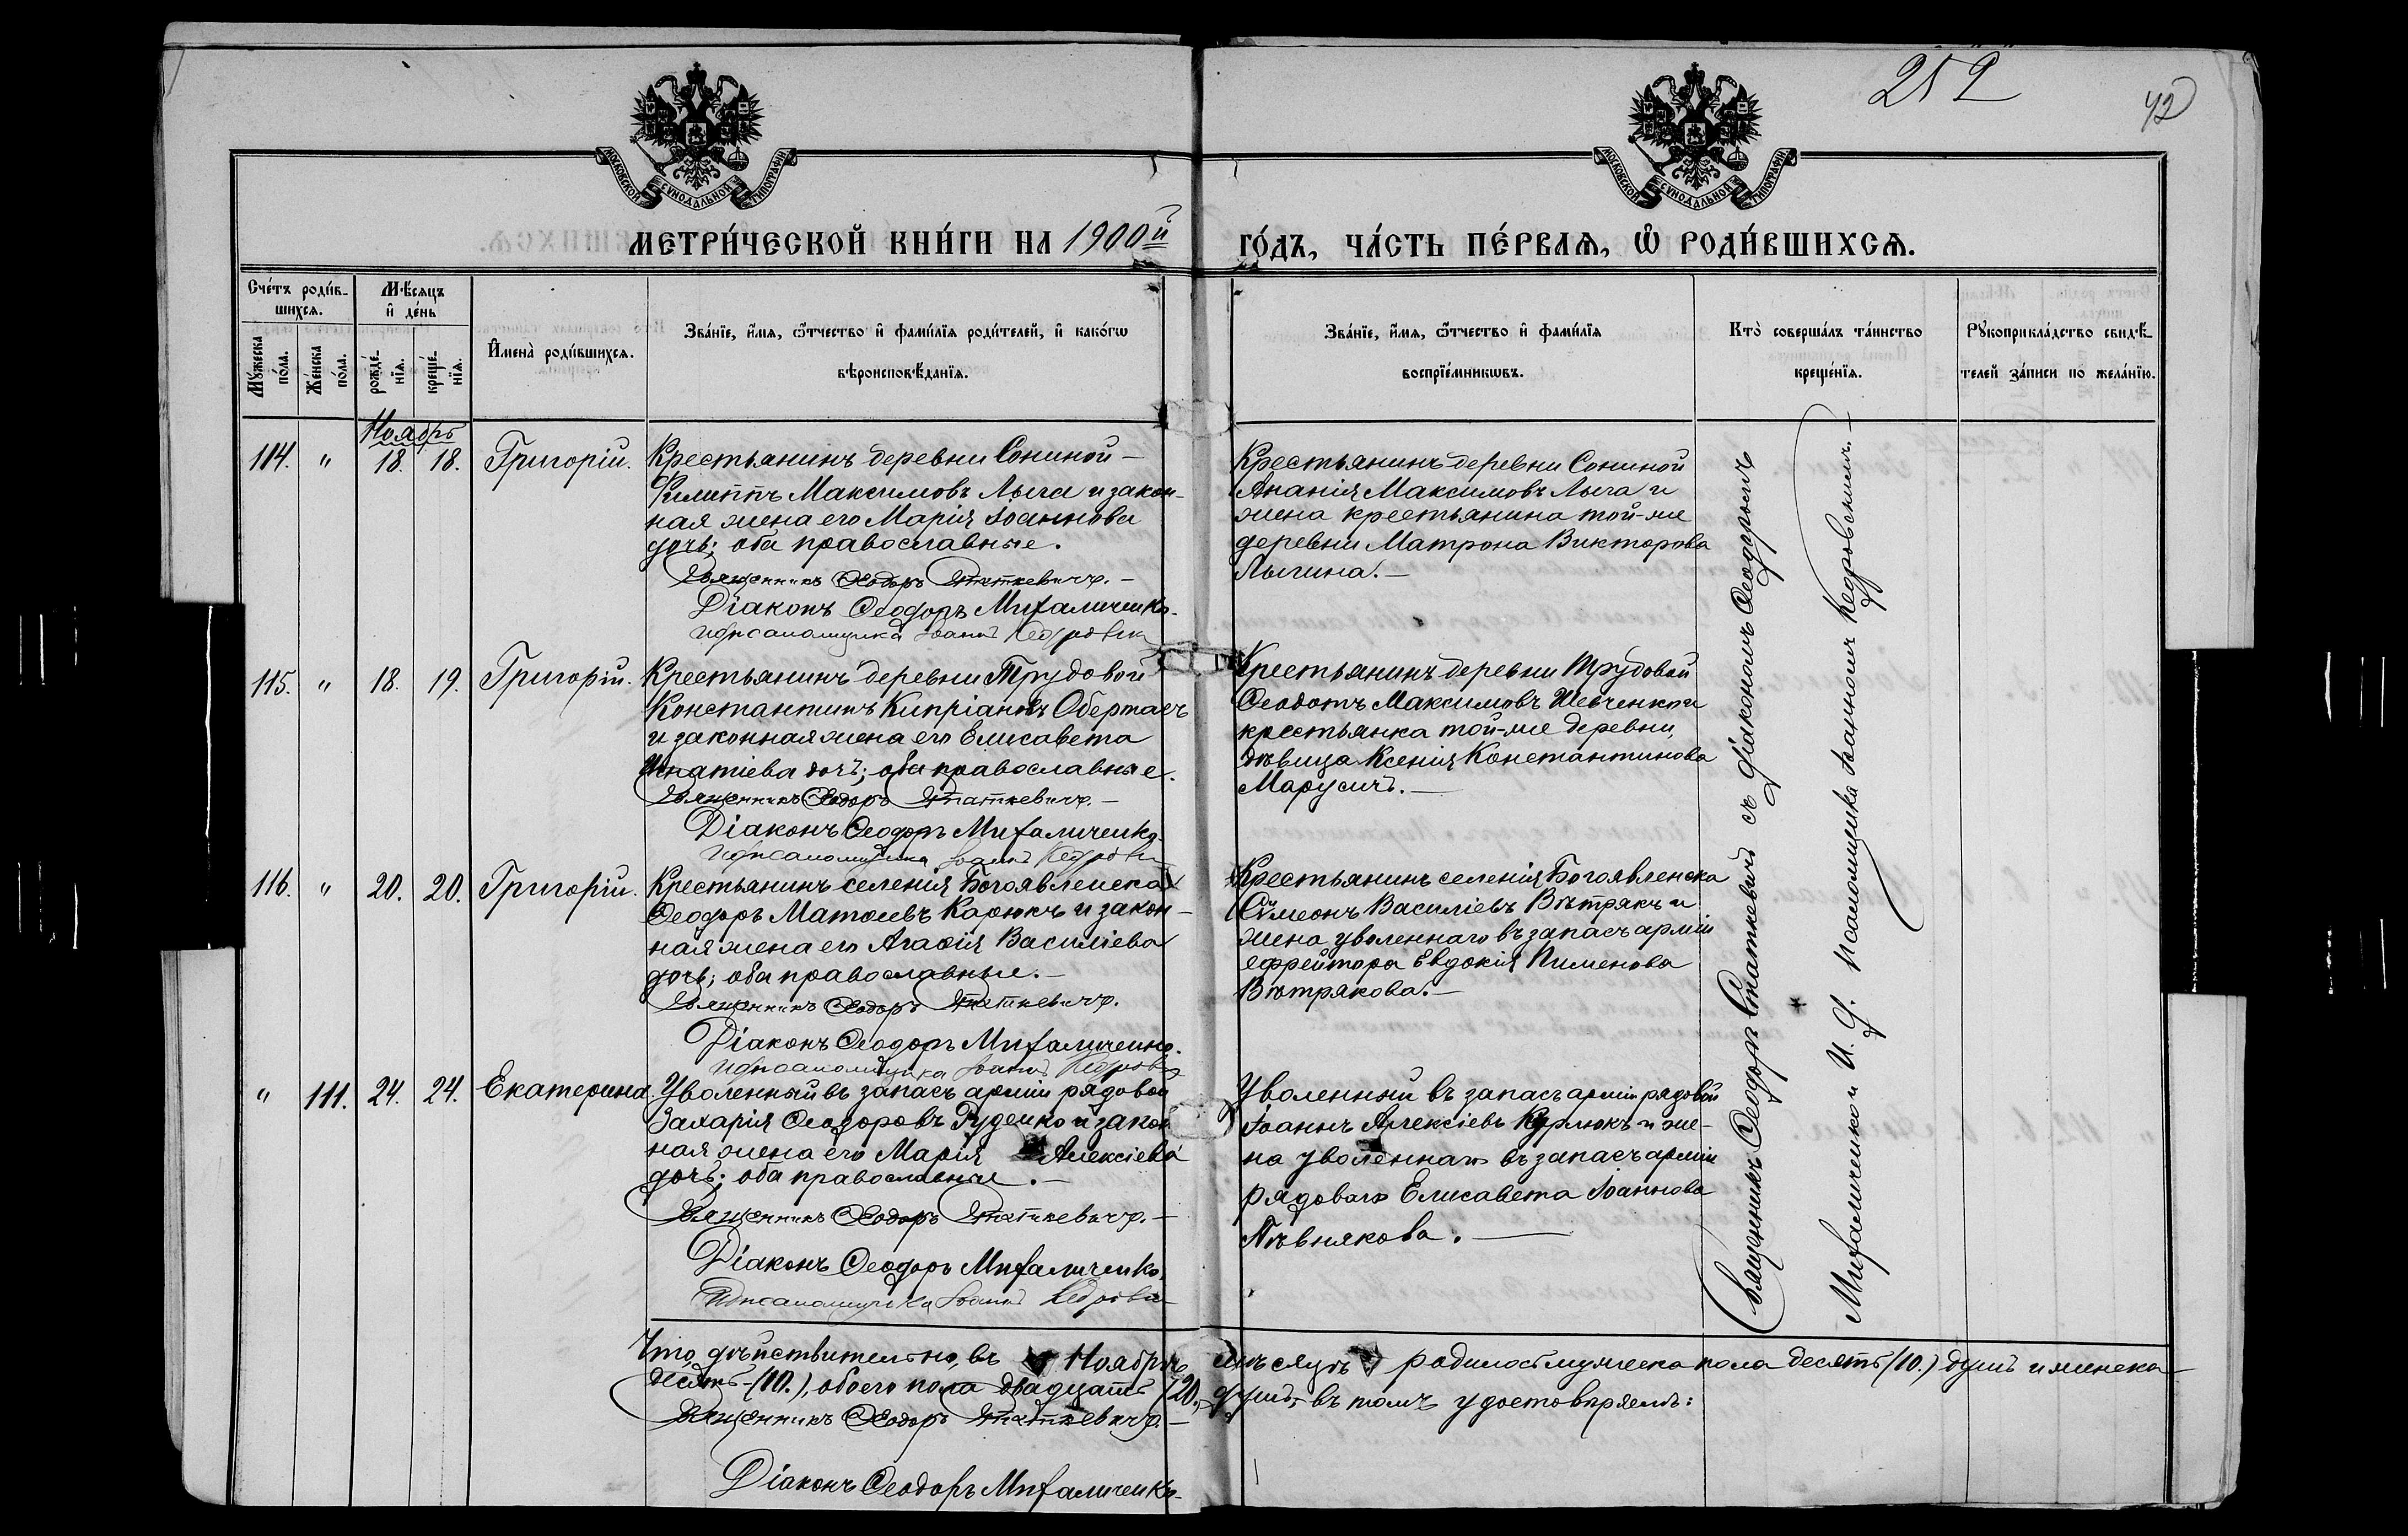 252
42
МОСКОВСКОЙ СѴНОДАЛЬНОЙ ТИПОГРАФІИ
МОСКОВСКОЙ СѴНОДАЛЬНОЙ ТИПОГРАФІИ
МЕТРИ́ЧЕСКОЙ КНИ́ГИ НА 1900й
ГО́ДЪ, ЧА́СТЬ ПЕ́РВАѦ, Ѡ РОДИ́ВШИХСѦ.
Сче́тъ роди́в-
шихсѧ.
Мꙋ́жеска по́ла.
Же́нска по́ла.
Мѣ́сѧцъ и҆ де́нь
рожде́-нїѧ.
креще́-нїѧ.
И҆мена̀ роди́вшихсѧ.
Зва́нїе, и҆́мѧ, ѻ҆́тчество и҆ фами́лїѧ роди́телей, и҆ како́гѡ
вѣроисповѣ́данїѧ.
Зва́нїе, и҆́мѧ, ѻ҆́тчество и҆ фами́лїѧ
воспрїе́мникѡвъ.
Кто̀ соверша́лъ та́инство
креще́нїѧ.
Рꙋкоприкла́дство свидѣ́-
телей за́писи по жела́нїю.
Ноябрь
114. " 18. 18. Григорій.
Крестьянинъ деревни Сониной -
Филиппъ Максимовъ Лыга и закон-
ная жена его Марія Іоаннова
дочь; оба православные.
Священникъ Ѳеодоръ Статкевичъ. -
Діаконъ Ѳеодоръ Михаличенко.
Иd псаломщика Іоаннъ Кедровск
Крестьянинъ деревни Сониной
Ананія Максимовъ Лыга и
жена крестьянина той-же
деревни Матрона Викторова
Лыгина. -
115. " 18. 19. Григорій.
Крестьянинъ деревни Трудовой
Константинъ Кипріановъ Обертасъ
и законная жена его Елисавета
Игнатіева дочь; оба православные.
Священникъ Ѳеодоръ Статкевичъ. -
Діаконъ Ѳеодоръ Михаличенко.
Иd псаломщика Іоаннъ Кедровск
Крестьянинъ деревни Трудовой
Ѳеодотъ Максимовъ Шевченко и
крестьянка той-же деревни,
дѣвица Ксенія Константинова
Марусичъ. -
116. " 20. 20. Григорій.
Крестьянинъ селенія Богоявленска
Ѳеодоръ Матѳеевъ Карюкъ и закон-
ная жена его Агаѳія Василіева
дочь; оба православные. -
Священникъ Ѳеодоръ Статкевичъ.
Діаконъ Ѳеодоръ Михаличенко.
Иd псаломщика Іоаннъ Кедровск
Крестьянинъ селенія Богоявленска
Сѵмеонъ Василіевъ Вѣтрякъ и
жена уволеннаго въ запасъ арміи
ефрейтора Евдокія Пименова
Вѣтрякова. -
" 111. 24. 24. Екатерина.
Уволенный въ запасъ арміи рядовой
Захарія Ѳеодоровъ Руденко и закон
ная жена его Марія Алексіева
дочь; оба православные. -
Священникъ Ѳеодоръ Статкевичъ. -
Діаконъ Ѳеодоръ Михаличенко.
Иd псаломщика Іоаннъ Кедровск
Уволенный въ запасъ арміи рядовой
Іоаннъ Алексіевъ Курлюкъ и же-
на уволеннаго въ запасъ арміи
рядоваго Елисавета Іоаннова
Пѣвнякова. -
Священникъ Ѳеодоръ Статкевичъ съ діакономъ Ѳеодоромъ
Михаличенко и И. д. псаломщика Іоанномъ Кедровскимъ. -
Что дѣйствительно, въ Ноябрѣ мѣсяцѣ родилось мужеска пола десять (10.) душъ и женска
десять - (10.), обоего пола двадцать (20.) душъ, въ томъ удостовѣряемъ:
Священникъ Ѳеодоръ Статкевичъ. -
Діаконъ Ѳеодоръ Михаличенко.